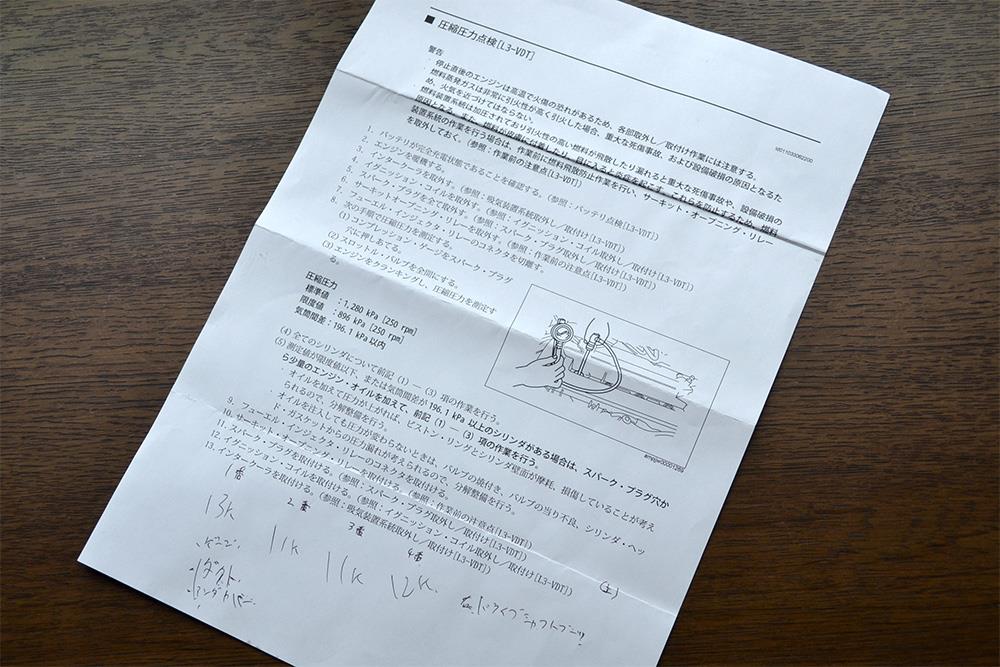 ■ 圧縮圧力点検[L3-VDT]
id0110330B2200
警告
・停止直後のエンジンは高温で火傷の恐れがあるため、各部取外し／取付け作業には注意する。
・燃料蒸発ガスは非常に引火性が高く引火した場合、重大な死傷事故、および設備破損の原因となるた
め、火気を近づけてはならない。
・燃料装置系統は加圧されており引火性の高い燃料が飛散したり漏れると重大な死傷事故や、設備破損の
原因となる。また、燃料が皮膚に付着したり、目に入ると炎症を起こす。これらを防止するため、燃料
装置系統の作業を行う場合は、作業前に燃料飛散防止作業を行い、サーキット・オープニング・リレー
を取外しておく。(参照：作業前の注意点[L3-VDT])
1. バッテリが完全充電状態であることを確認する。(参照：バッテリ点検[L3-VDT])
2. エンジンを暖機する。
3. インタークーラを取外す。(参照：吸気装置系統取外し／取付け[L3-VDT])
4. イグニッション・コイルを取外す。(参照：イグニッション・コイル取外し／取付け[L3-VDT])
5. スパーク・プラグを全て取外す。(参照：スパーク・プラグ取外し／取付け[L3-VDT])
6. サーキットオープニング・リレーを取外す。(参照：作業前の注意点[L3-VDT])
7. フューエル・インジェクタ・リレーのコネクタを切離す。
8. 次の手順で圧縮圧力を測定する。
(1) コンプレッション・ゲージをスパーク・プラグ
穴に押しあてる。
(2) スロットル・バルブを全開にする。
(3) エンジンをクランキングし、圧縮圧力を測定す
る。
圧縮圧力
標準値 ：1,280 kPa [250 rpm]
限度値 ：896 kPa [250 rpm]
気筒間差：196.1 kPa 以内
(4) 全てのシリンダについて前記 (1) ― (3) 項の作業を行う。
(5) 測定値が限度値以下、または気筒間差が 196.1 kPa 以上のシリンダがある場合は、スパーク・プラグ穴か
ら少量のエンジン・オイルを加えて、前記 (1) ― (3) 項の作業を行う。
・オイルを加えて圧力が上がれば、ピストン・リングとシリンダ壁面が摩耗、損傷していることが考え
られるので、分解整備を行う。
・オイルを注入しても圧力が変わらないときは、バルブの焼付き、バルブの当り不良、シリンダ・ヘッ
ド・ガスケットからの圧力漏れが考えられるので、分解整備を行う。
9. フューエル・インジェクタ・リレーのコネクタを取付ける。
10. サーキット・オープニング・リレーを取付ける。(参照：作業前の注意点[L3-VDT])
11. スパーク・プラグを取付ける。(参照：スパーク・プラグ取外し／取付け[L3-VDT])
12. イグニッション・コイルを取付ける。(参照：イグニッション・コイル取外し／取付け[L3-VDT])
13. インタークーラを取付ける。(参照：吸気装置系統取外し／取付け[L3-VDT])
1番
2番
3番
4番
13K
11K
11K
12K
ダクト
右ドライブシャフトブーツ